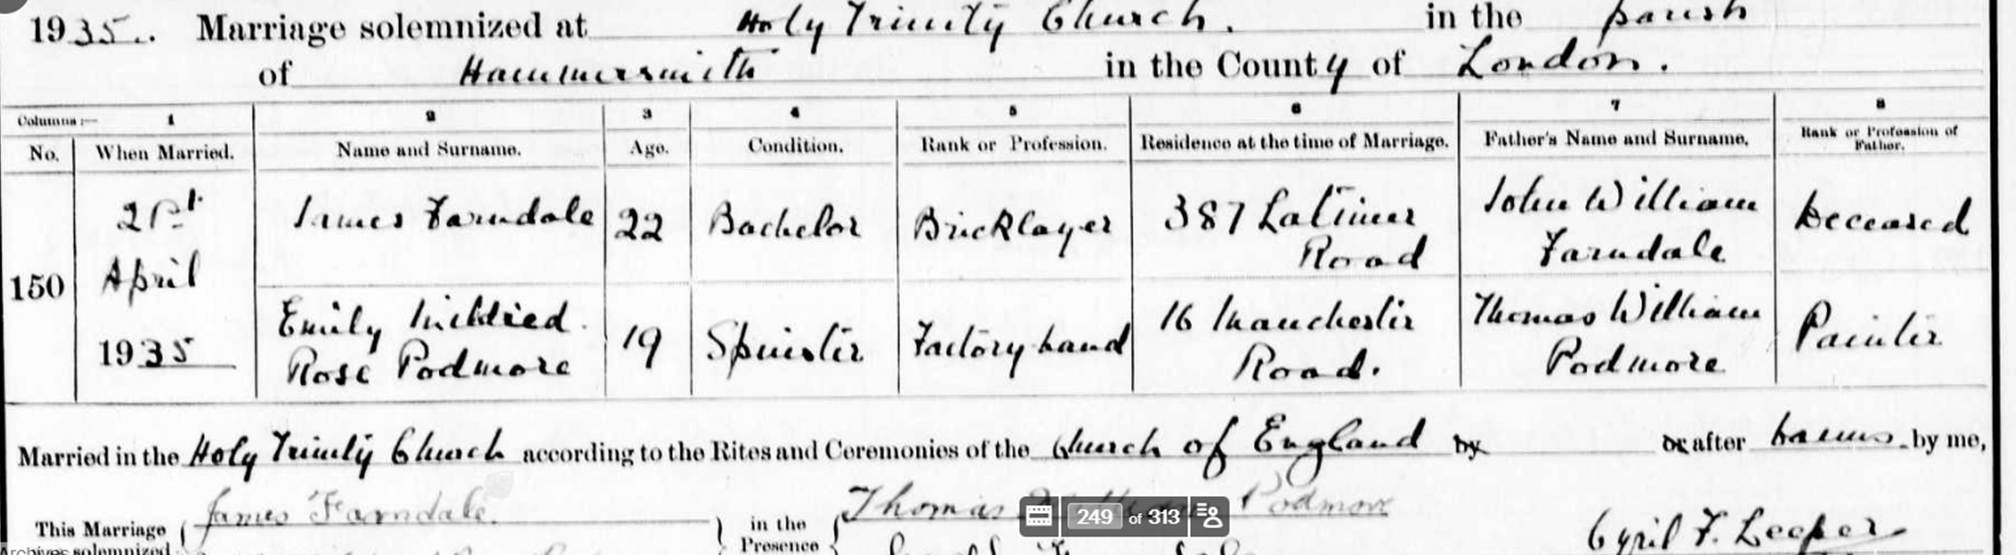 1935.. Marriage solemnized at Holy Trinity Church. in the parish
of Hammersmith in the County of London.
Columns:— 1 2 3 4 5 6 7 8
No. When Married. Name and Surname. Age. Condition. Rank or Profession. Residence at the time of Marriage. Father's Name and Surname. Rank or Profession of Father.
150
21st
April
1935
James Farndale 22 Bachelor Bricklayer 387 Latimer
Road
John William
Farndale
Deceased
Emily Mildred
Rose Podmore
19 Spinster Factory hand 16 Manchester
Road.
Thomas William
Podmore
Painter
Married in the Holy Trinity Church according to the Rites and Ceremonies of the Church of England by or after banns by me,
This Marriage James Farndale. in the Thomas Podmore Cyril F. Leeper
solemnized Presence
249 of 313